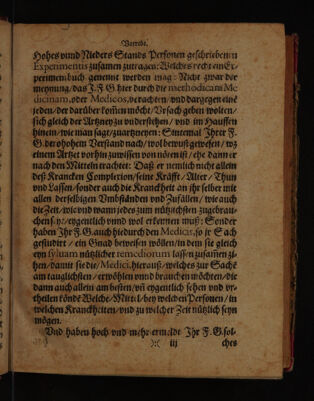 Vorrede.
Hohes vnnd Nieders Stands Personen geschriebenen
Experimentis zusamen zutragen: Welches recht ein Ex-
periment buch genennt werden mag: Nicht zwar der
meynung / das J. F. G. hier durch die methodicam Me-
dicinam, oder Medicos, verachten / vnd dargegen eine
jeden / der darüber komen möcht / Vrsach geben wolten /
sich gleich der Artzney zu vnderstehen / vnd im Hauffen
hinein / wie man sagt / zuartzneyen: Sintemal Ihrer F.
G. bey hohem Verstand nach / wol bewust gewesen / wz
einem Artzet vorhin zuwissen von nöten / ehe dann er
nach den Mitteln trachtet: Daß er nemlich nicht allein
deß Krancken Complexion / seine Kräfft / Alter / Thun
vnd Lassen / sonder auch die Kranckheit an jhr selber mit
allen derselbigen Vmbständen vnd Zufällen / wie auch
die Zeit / wie vnd wann jedes zum nützlichsten zugebrau-
chen / eygentlich vnnd wol erkennen muß: Sonder
haben Jhr F. G. auch hiedurch den Medicis, so jr Sach
gestudirt / ein Gnad beweisen wöllen / in dem sie gleich
eyn sylvam nützlicher remediorum lassen zusammen zi-
hen / damit sie die Medici, hierauß / welches zur Sache
am tauglichsten / erwöhlen vnnd brauchen möchten / die
dann auch allein am besten / vñ eygentlich sehen vnd vr-
theilen könde Welche Mittel / bey welchen Personen / in
welchen Kranckheiten / vnd zu welcher Zeit nützlich seyn
mögen.
Vnd haben hoch vnd mehr ermeldte Jhr F. G. sol-
):( iij ches